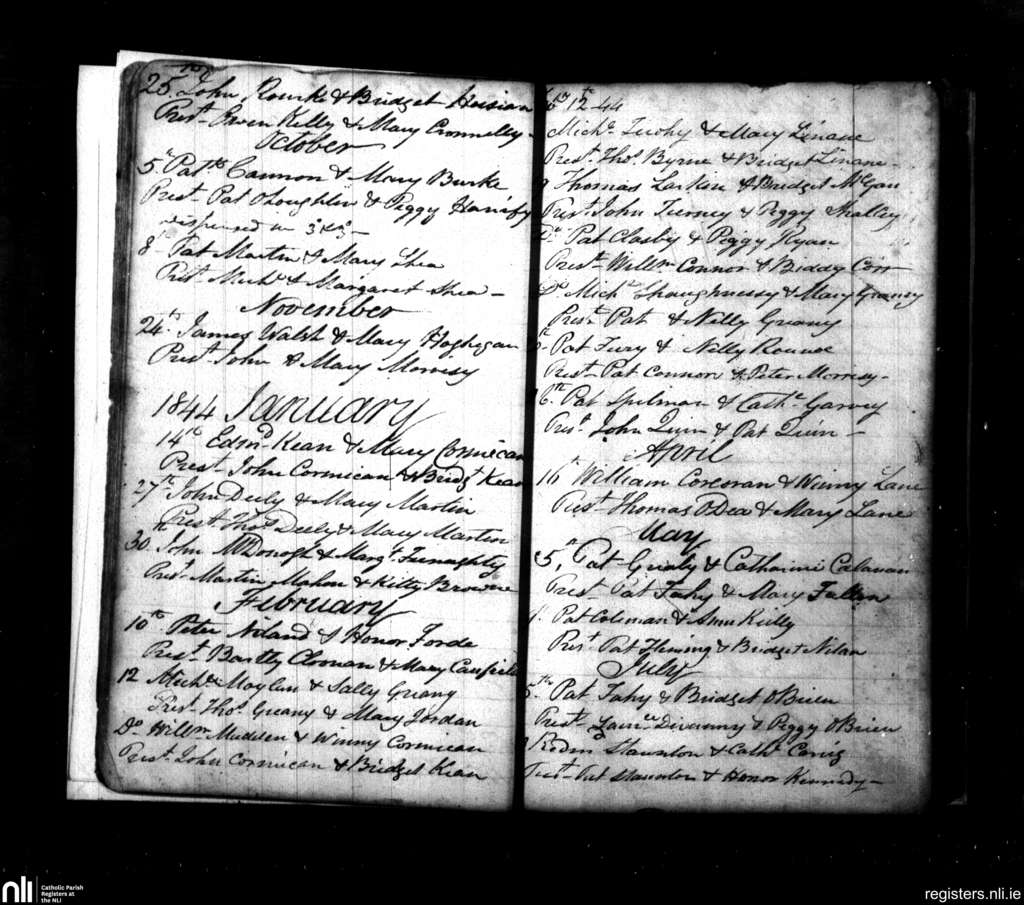 25th John Rourke & Bridget
Prest Owen Kelly & Mary Connelly
October
5th Patk Cannon & Mary Burke
Prest Pat OLoughlin & Peggy
dispensed in 3 & 3
8th Pat Martin & Mary Shea
Prest Michl & Margaret Shea
November
24th James Walsh & Mary Hoghegan
Prest John & Mary Morrisy
1844 January
14th Edmd Kean & Mary Cormican
Prest John Cormican & Bridgt Kean
27th John Deely & Mary Martin
Prest Thos Deely & Mary Martin
30th John McDonogh & Margt Finnaghty
Prest Martin Mahon & Kitty Browne
February
10th Peter Niland & Honor Forde
Prest Bartly Clonan & Mary Caufield
12 Michl Moylan & Sally Greany
Prest Thos Greany & Mary Jordan
Do Willm Madden & Winny Cormican
Prest John Cormican & Bridget Kean
12th 44
Michl Tuohy & Mary Linane
Prest Thos Byrne & Bridget Linane
Thomas Larkin & Bridget McGan
Prest John Tierney & Peggy Shalley
Do Pat Clasby & Peggy Ryan
Prest Willm Connor & Biddy Corr
Do Michl Shaughnessy & Mary Greany
Prest Pat & Nelly Greany
Pat Fury & Nelly
Prest Pat Connor & Peter Morrisy
Pat Spilman & Cathe Garvey
Prest John Quin & Pat Quin
April
16th William Corcoran & Winny Lane
Prest Thomas ODea & Mary Lane
May
5th Pat & Catharine Calanan
Prest Pat Fahy & Mary Fallon
Pat Coleman & Ann Kielly
Prest Pat Fleming & Bridget Nilan
July
5th Pat Fahy & Bridget OBrien
Prest & Peggy OBrien
Staunton & Cathe
Prest Pat Staunton & Honor Kennedy
nli
Catholic Parish
Registers at
the NLI
registers.nli.ie